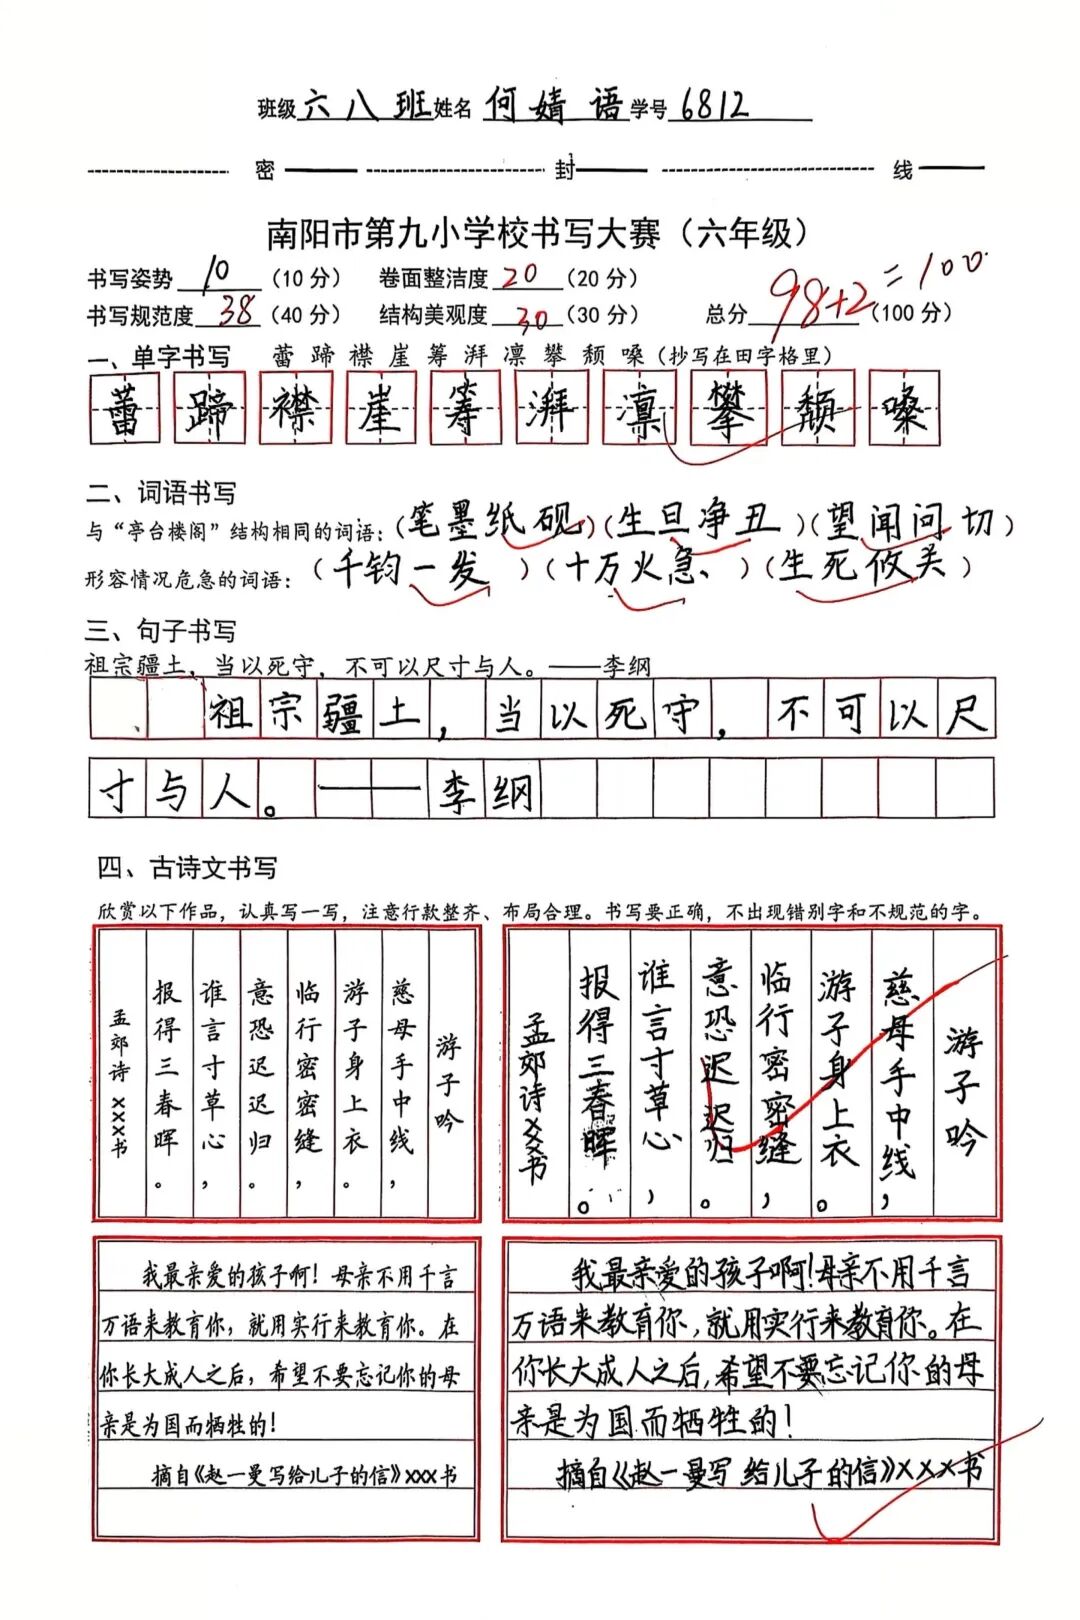 班级六八班姓名何婧语学号6812
密 封 线
南阳市第九小学校书写大赛（六年级）
书写姿势10（10分） 卷面整洁度20（20分）
98+2=100
书写规范度38（40分） 结构美观度30（30分） 总分（100分）
一、单字书写 蕾蹄襟崖筹湃凛攀颓嗓（抄写在田字格里）
蕾蹄襟崖筹湃凛攀颓嗓
二、词语书写
与“亭台楼阁”结构相同的词语：（笔墨纸砚）（生旦净丑）（望闻问切）
形容情况危急的词语：（千钧一发）（十万火急）（生死攸关）
三、句子书写
祖宗疆土，当以死守，不可以尺寸与人。——李纲
祖宗疆土，当以死守，不可以尺
寸与人。——李纲
四、古诗文书写
欣赏以下作品，认真写一写，注意行款整齐、布局合理。书写要正确，不出现错别字和不规范的字。
游子吟
慈母手中线，
游子身上衣。
临行密密缝，
意恐迟迟归。
谁言寸草心，
报得三春晖。
孟郊诗 XXX书
游子吟
慈母手中线，
游子身上衣。
临行密密缝，
意恐迟迟归。
谁言寸草心，
报得三春晖。
孟郊诗XXX书
我最亲爱的孩子啊！母亲不用千言
万语来教育你，就用实行来教育你。在
你长大成人之后，希望不要忘记你的母
亲是为国而牺牲的！
摘自《赵一曼写给儿子的信》XXX书
我最亲爱的孩子啊！母亲不用千言
万语来教育你，就用实行来教育你。在
你长大成人之后，希望不要忘记你的母
亲是为国而牺牲的！
摘自《赵一曼写给儿子的信》XXX书